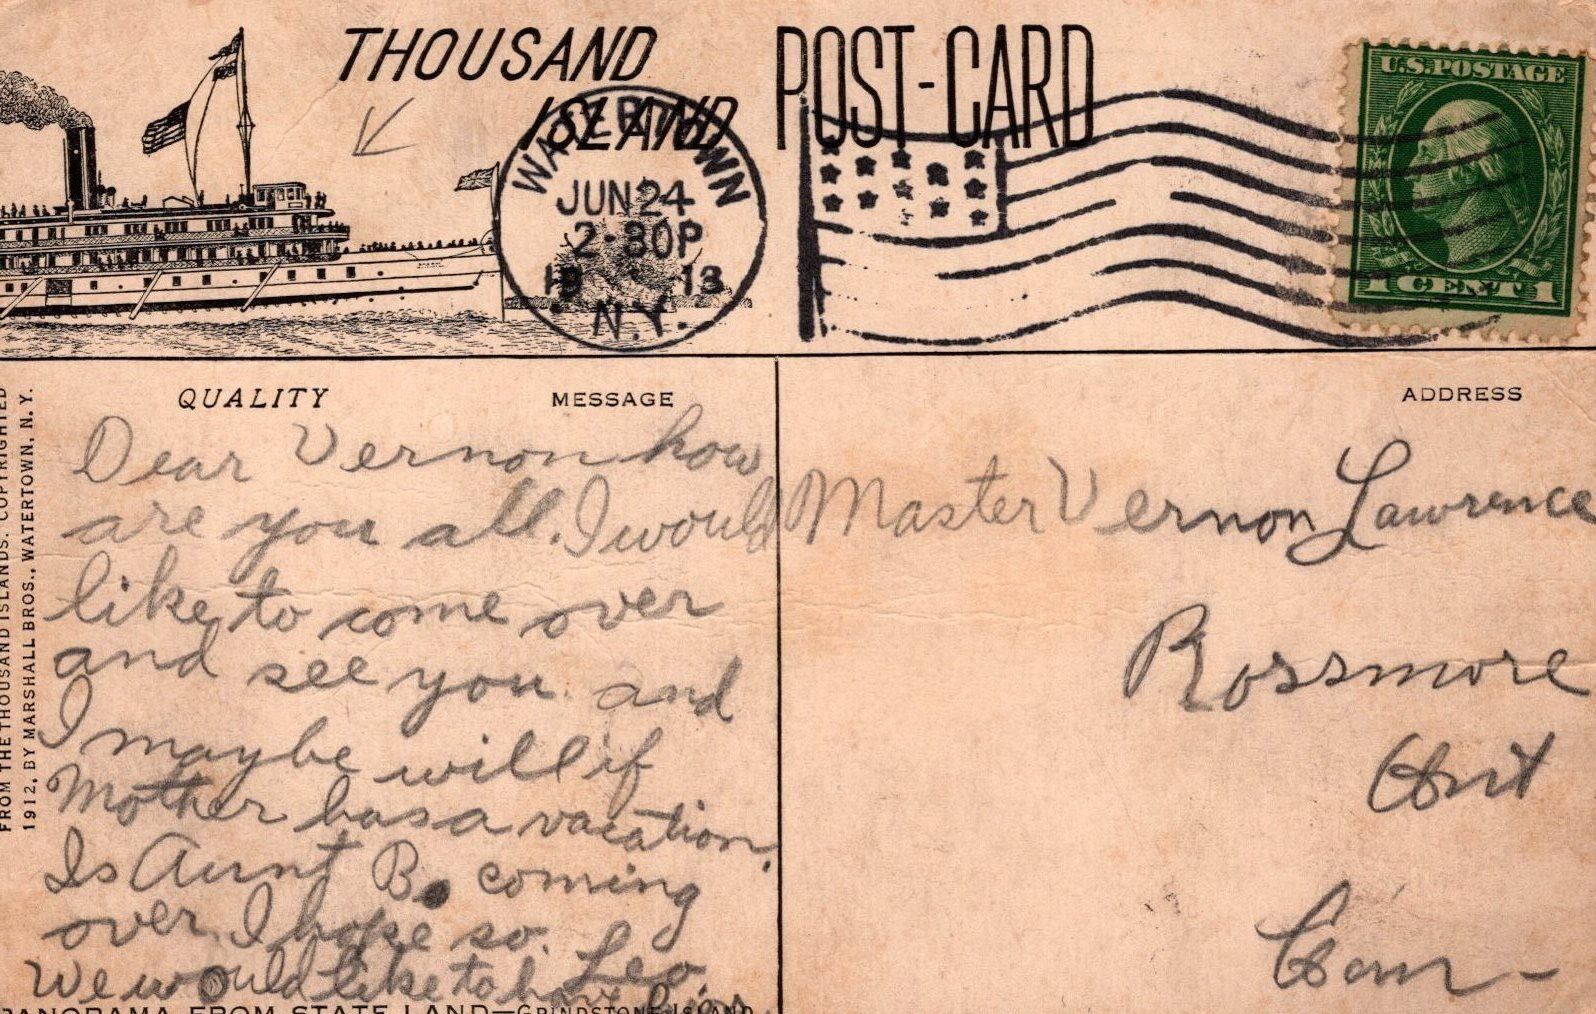 THOUSAND
ISLAND
POST-CARD
WATERTOWN
JUN 24
2-30P
19 13
N.Y.
U.S. POSTAGE
1 CENT 1
QUALITY
MESSAGE
ADDRESS
FROM THE THOUSAND ISLANDS. COPYRIGHTED
1912, BY MARSHALL BROS., WATERTOWN, N. Y.
Dear Vernon how
are you all. I would
like to come over
and see you and
I maybe will if
Mother has a vacation.
Is Aunt B. coming
over I hope so.
Leo
We would like to have
Master Vernon Lawrence
Rossmore
Ont
Can-
PANORAMA FROM STATE LAND—GRINDSTONE ISLAND